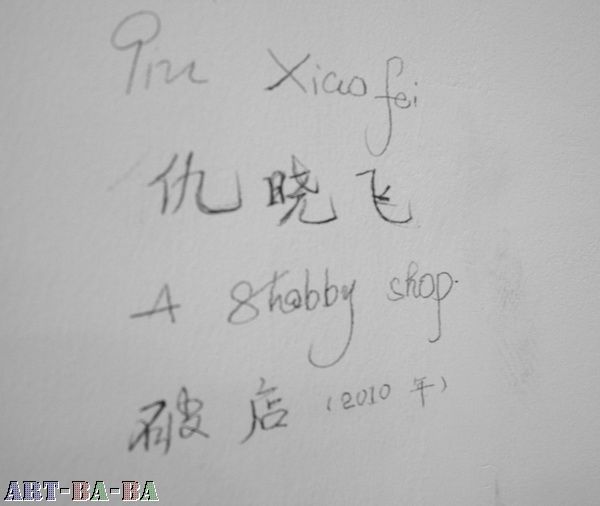 Qiu Xiaofei
仇晓飞
A Shabby shop.
破店 (2010年)
ART-BA-BA